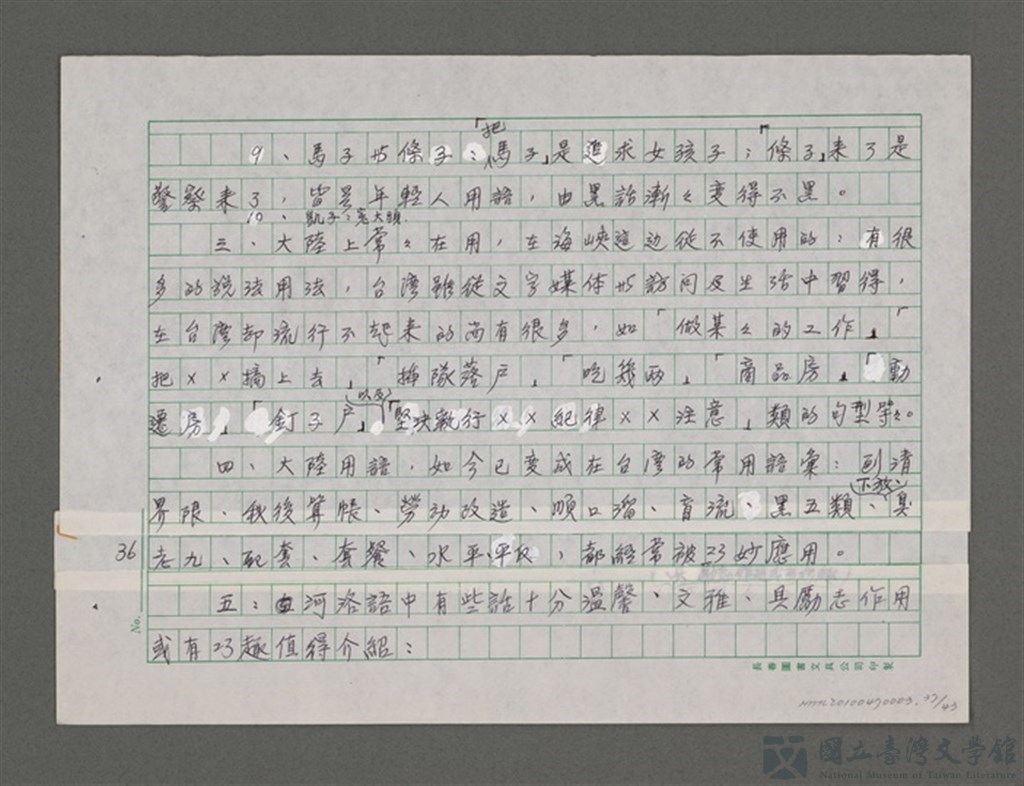 9、馬子与條子:「把馬子」是追求女孩子;「條子」來了是
警察來了,皆是年輕人用語,由黑話漸々变得不黑。
10、凱子:冤大頭.
三、大陸上常々在用,在海峽這边從不使用的:有很
多的說法用法,台灣雖從文字媒体或訪问及生活中習得,
在台灣却流行不起來的尚有很多,如「做某々的工作」「
把××搞上去」「插隊落戶」「吃幾兩」「商品房」「動
遷房」「釘子戶」以及「堅决執行××紀律××注意」類的句型等。
四、大陸用語,如今已变成在台灣的常用語彙:划清
界限、秋後算帳、勞动改造、順口溜、盲流、黑五類、下放、臭
老九、配套、套餐、水平、平反,都経常被巧妙應用。
五:河洛語中有些話十分溫馨、文雅、具勵志作用
或有巧趣值得介紹:
36
No.
長春圖書文具公司印製
NMTL20100470003.37/43
國立臺灣文學館
National Museum of Taiwan Literature